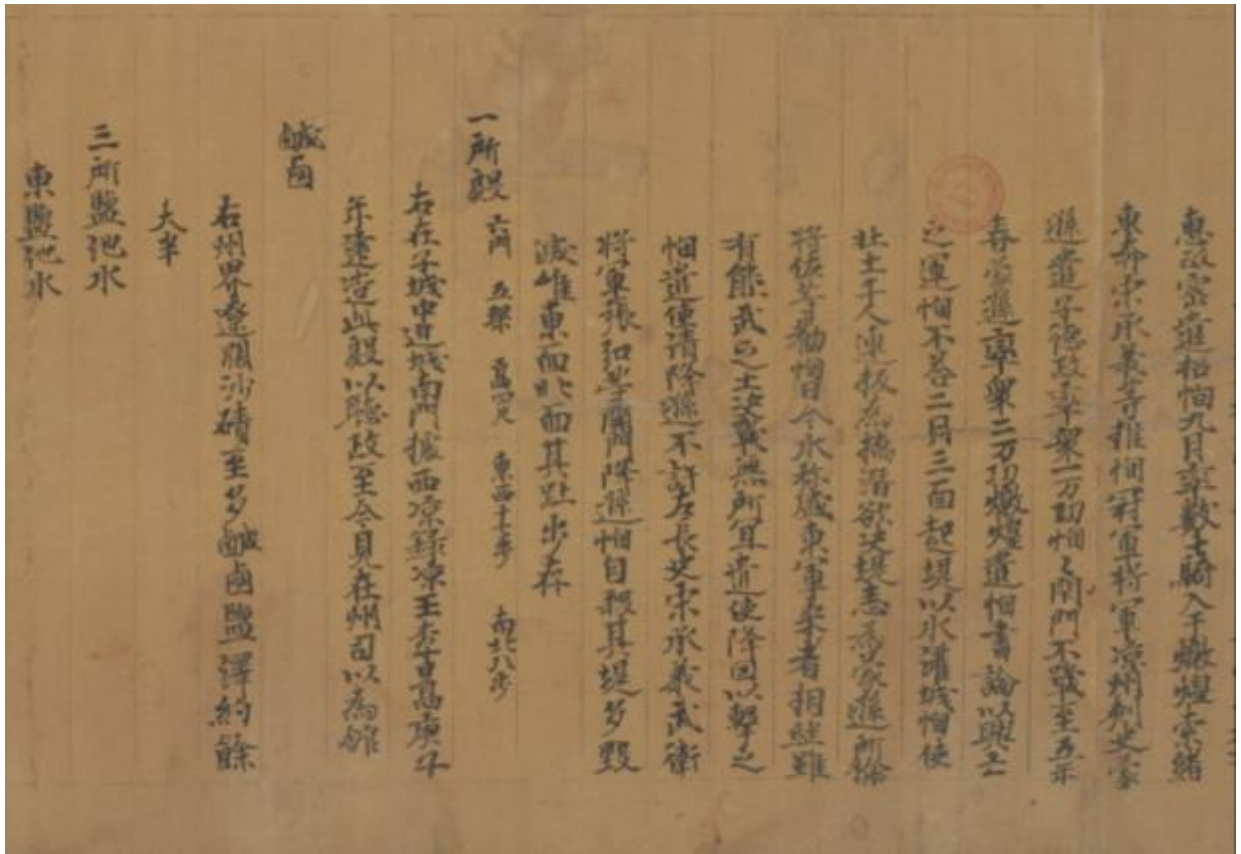 惠政密遣招恂九月率數十騎入于燉煌索緒
東奔宋承義等推恂冠軍將軍涼州刺史蒙
遜遣子德政率衆一万功恂〻閇門不戰至五年
春蒙遜率衆二万功燉煌遣恂書諭以興亡
之運恂不荅二月三面起堤以水灌城恂使
壯士千人連板為橋潛欲決堤悉為蒙遜所擒
將佐等勸恂曰今水称盛東軍来者相継雖
有熊武之士決戰無所宜遣使降因以擊之
恂遣使請降遜不許左長史宋承義武衛
將軍張弘等開門降遜恂自殺其堤多毀
滅唯東面北面其趾步存
一所殿 六間 五架 高四尺 東西十七步 南北八步
右在子城中近城南門據西涼録涼王李暠庚子
年建造此殿以聽政至今見在州司以為館
鹹鹵
右州界遼闊沙磧至多鹹鹵鹽澤約餘
大半
三所鹽池水
東鹽池水